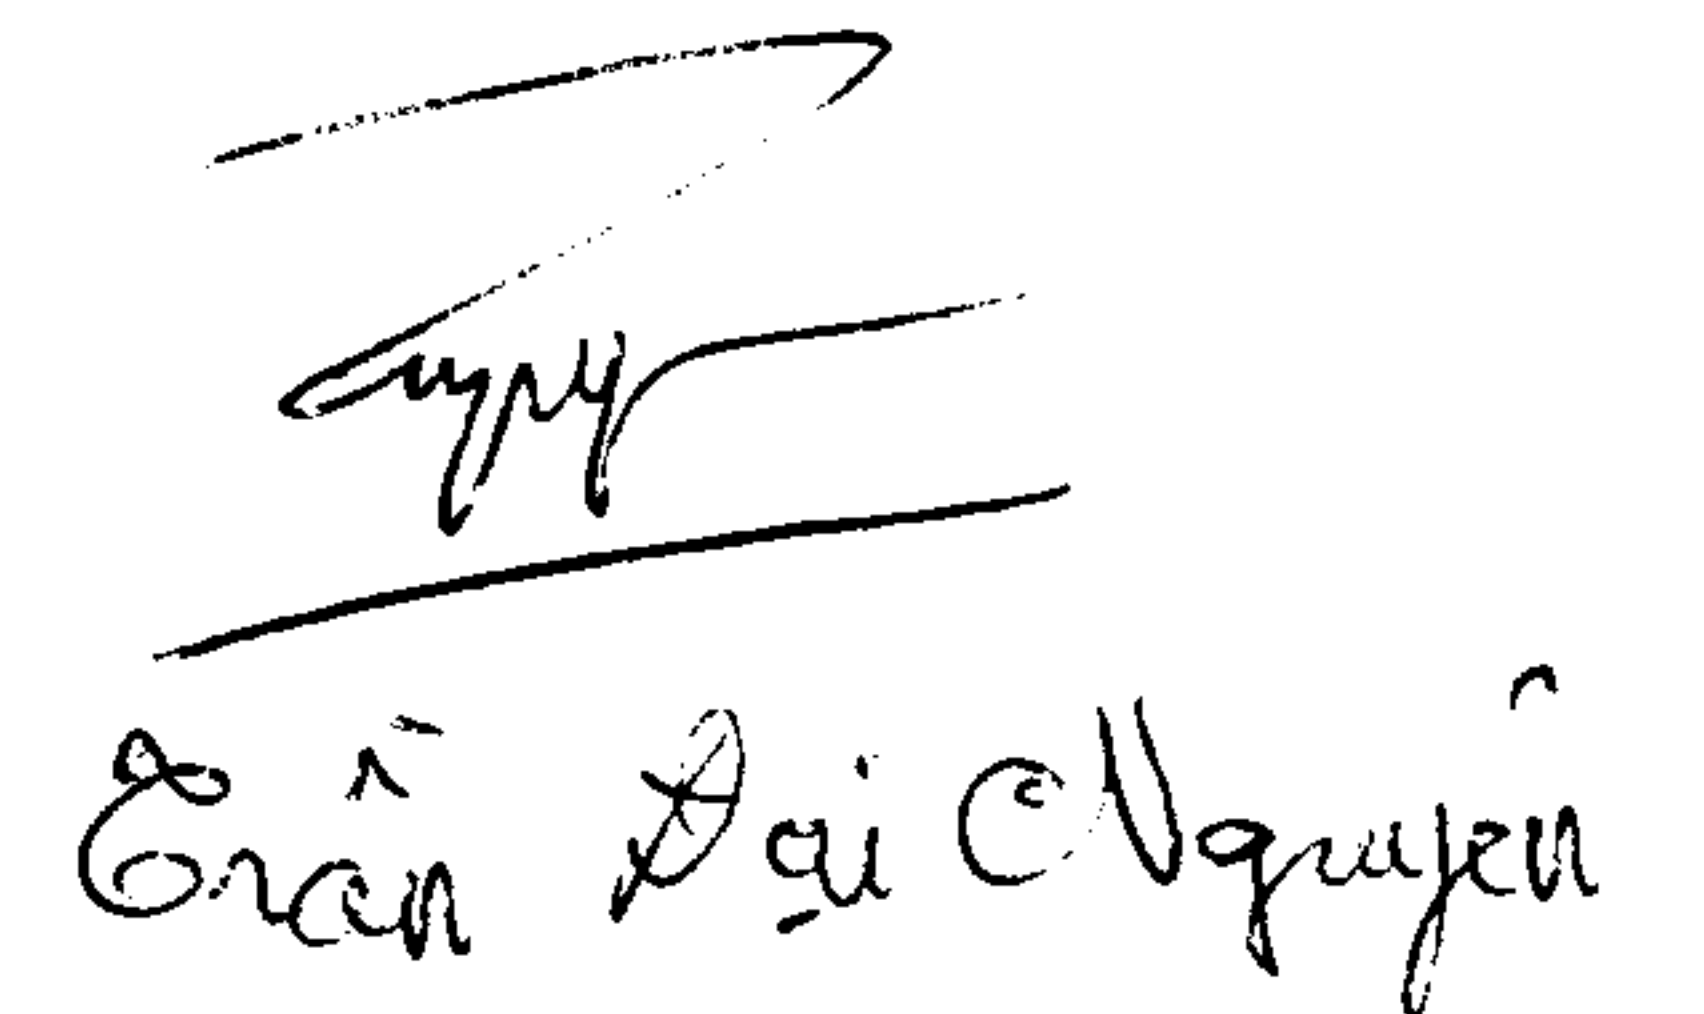 Trần Đại Nguyên